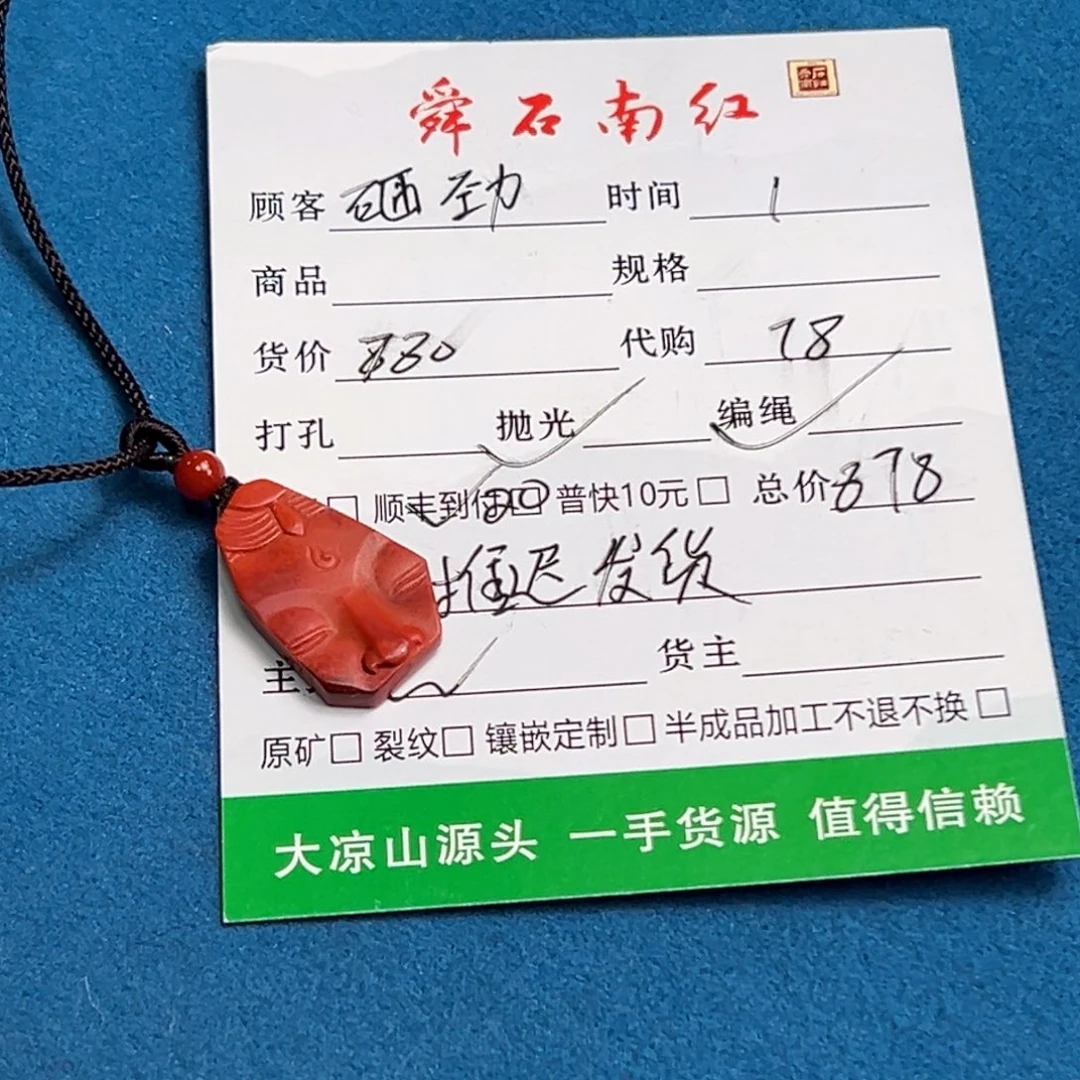 舜石南红
顾客 硒劲 时间 1
商品 规格
货价 830 代购 78
打孔 抛光 编绳
顺丰到付 20 普快10元 总价 878
推迟发货
主 货主
原矿 裂纹 镶嵌定制 半成品加工不退不换
大凉山源头 一手货源 值得信赖